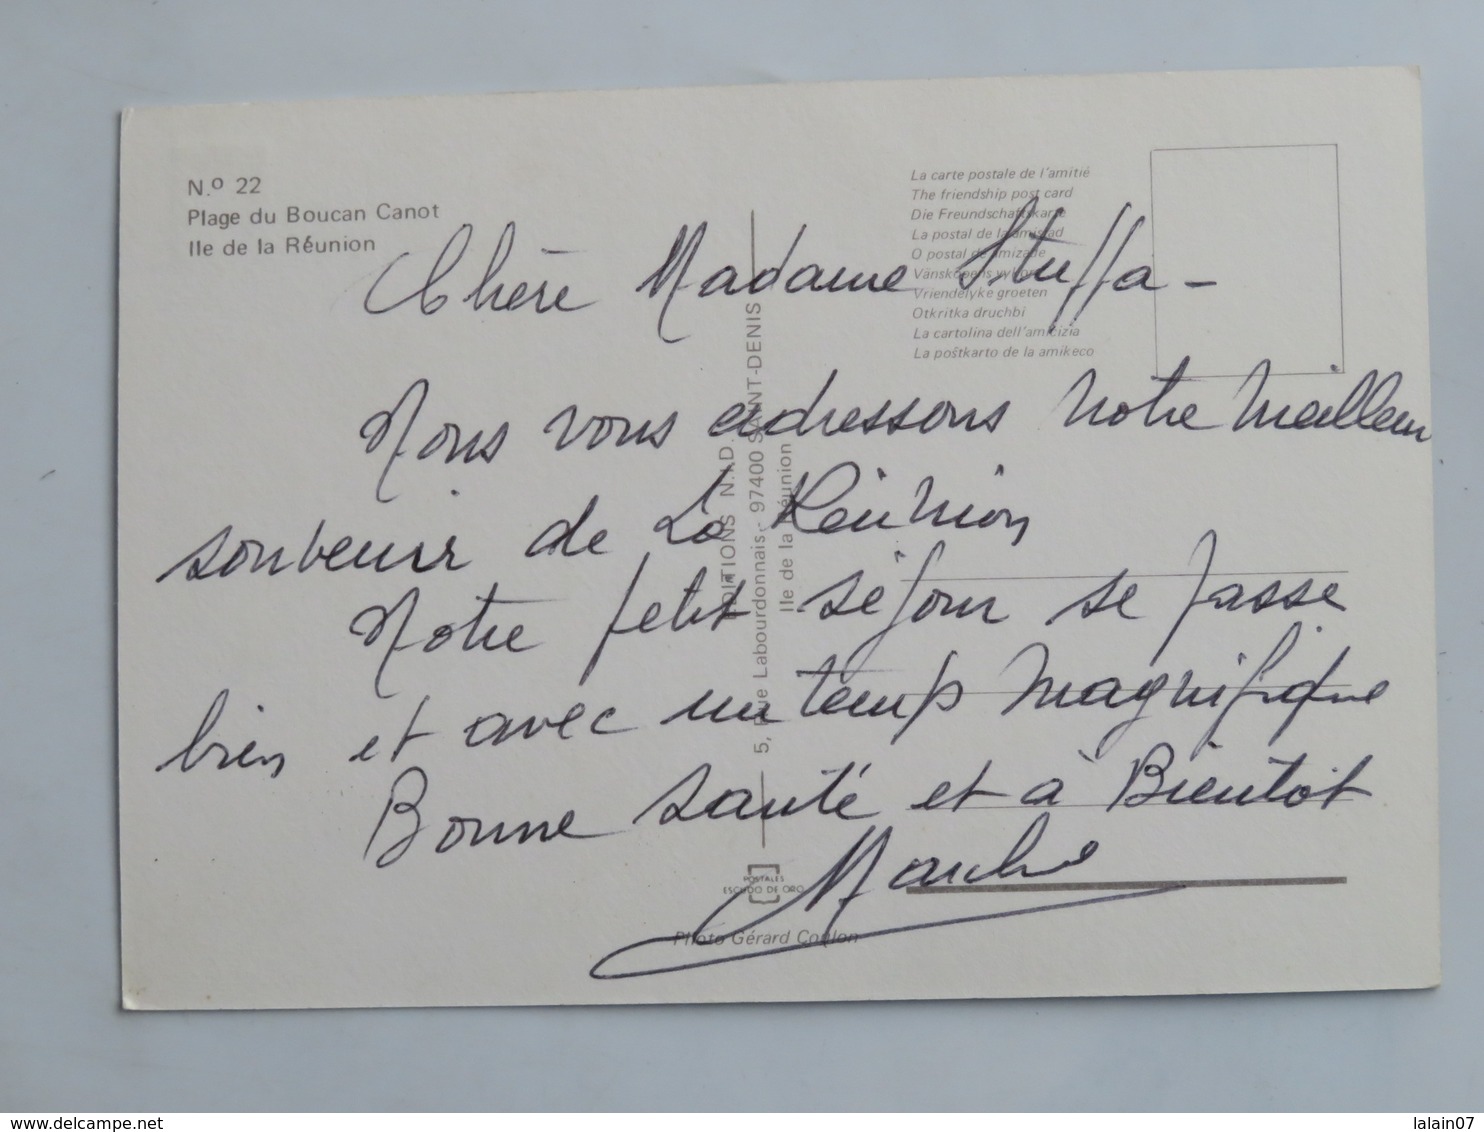 N.º 22
Plage du Boucan Canot
Ile de la Réunion
La carte postale de l'amitié
The friendship post card
Die Freundschaftskarte
La postal de la amistad
O postal de amizade
Vänskapens vykort
Vriendelyke groeten
Otkritka druchbi
La cartolina dell'amicizia
La poŝtkarto de la amikeco
Chère Madame Stuffa -
Nous vous adressons notre meilleur
souvenir de La Réunion
Notre petit séjour se passe
bien et avec un temps magnifique
Bonne santé et à Bientôt
EDITIONS N.I.D.
5, Rue Labourdonnais - 97400 SAINT-DENIS
Ile de la Réunion
POSTALES
ESCUDO DE ORO
Photo Gérard Coulon
www.delcampe.net
lalain07